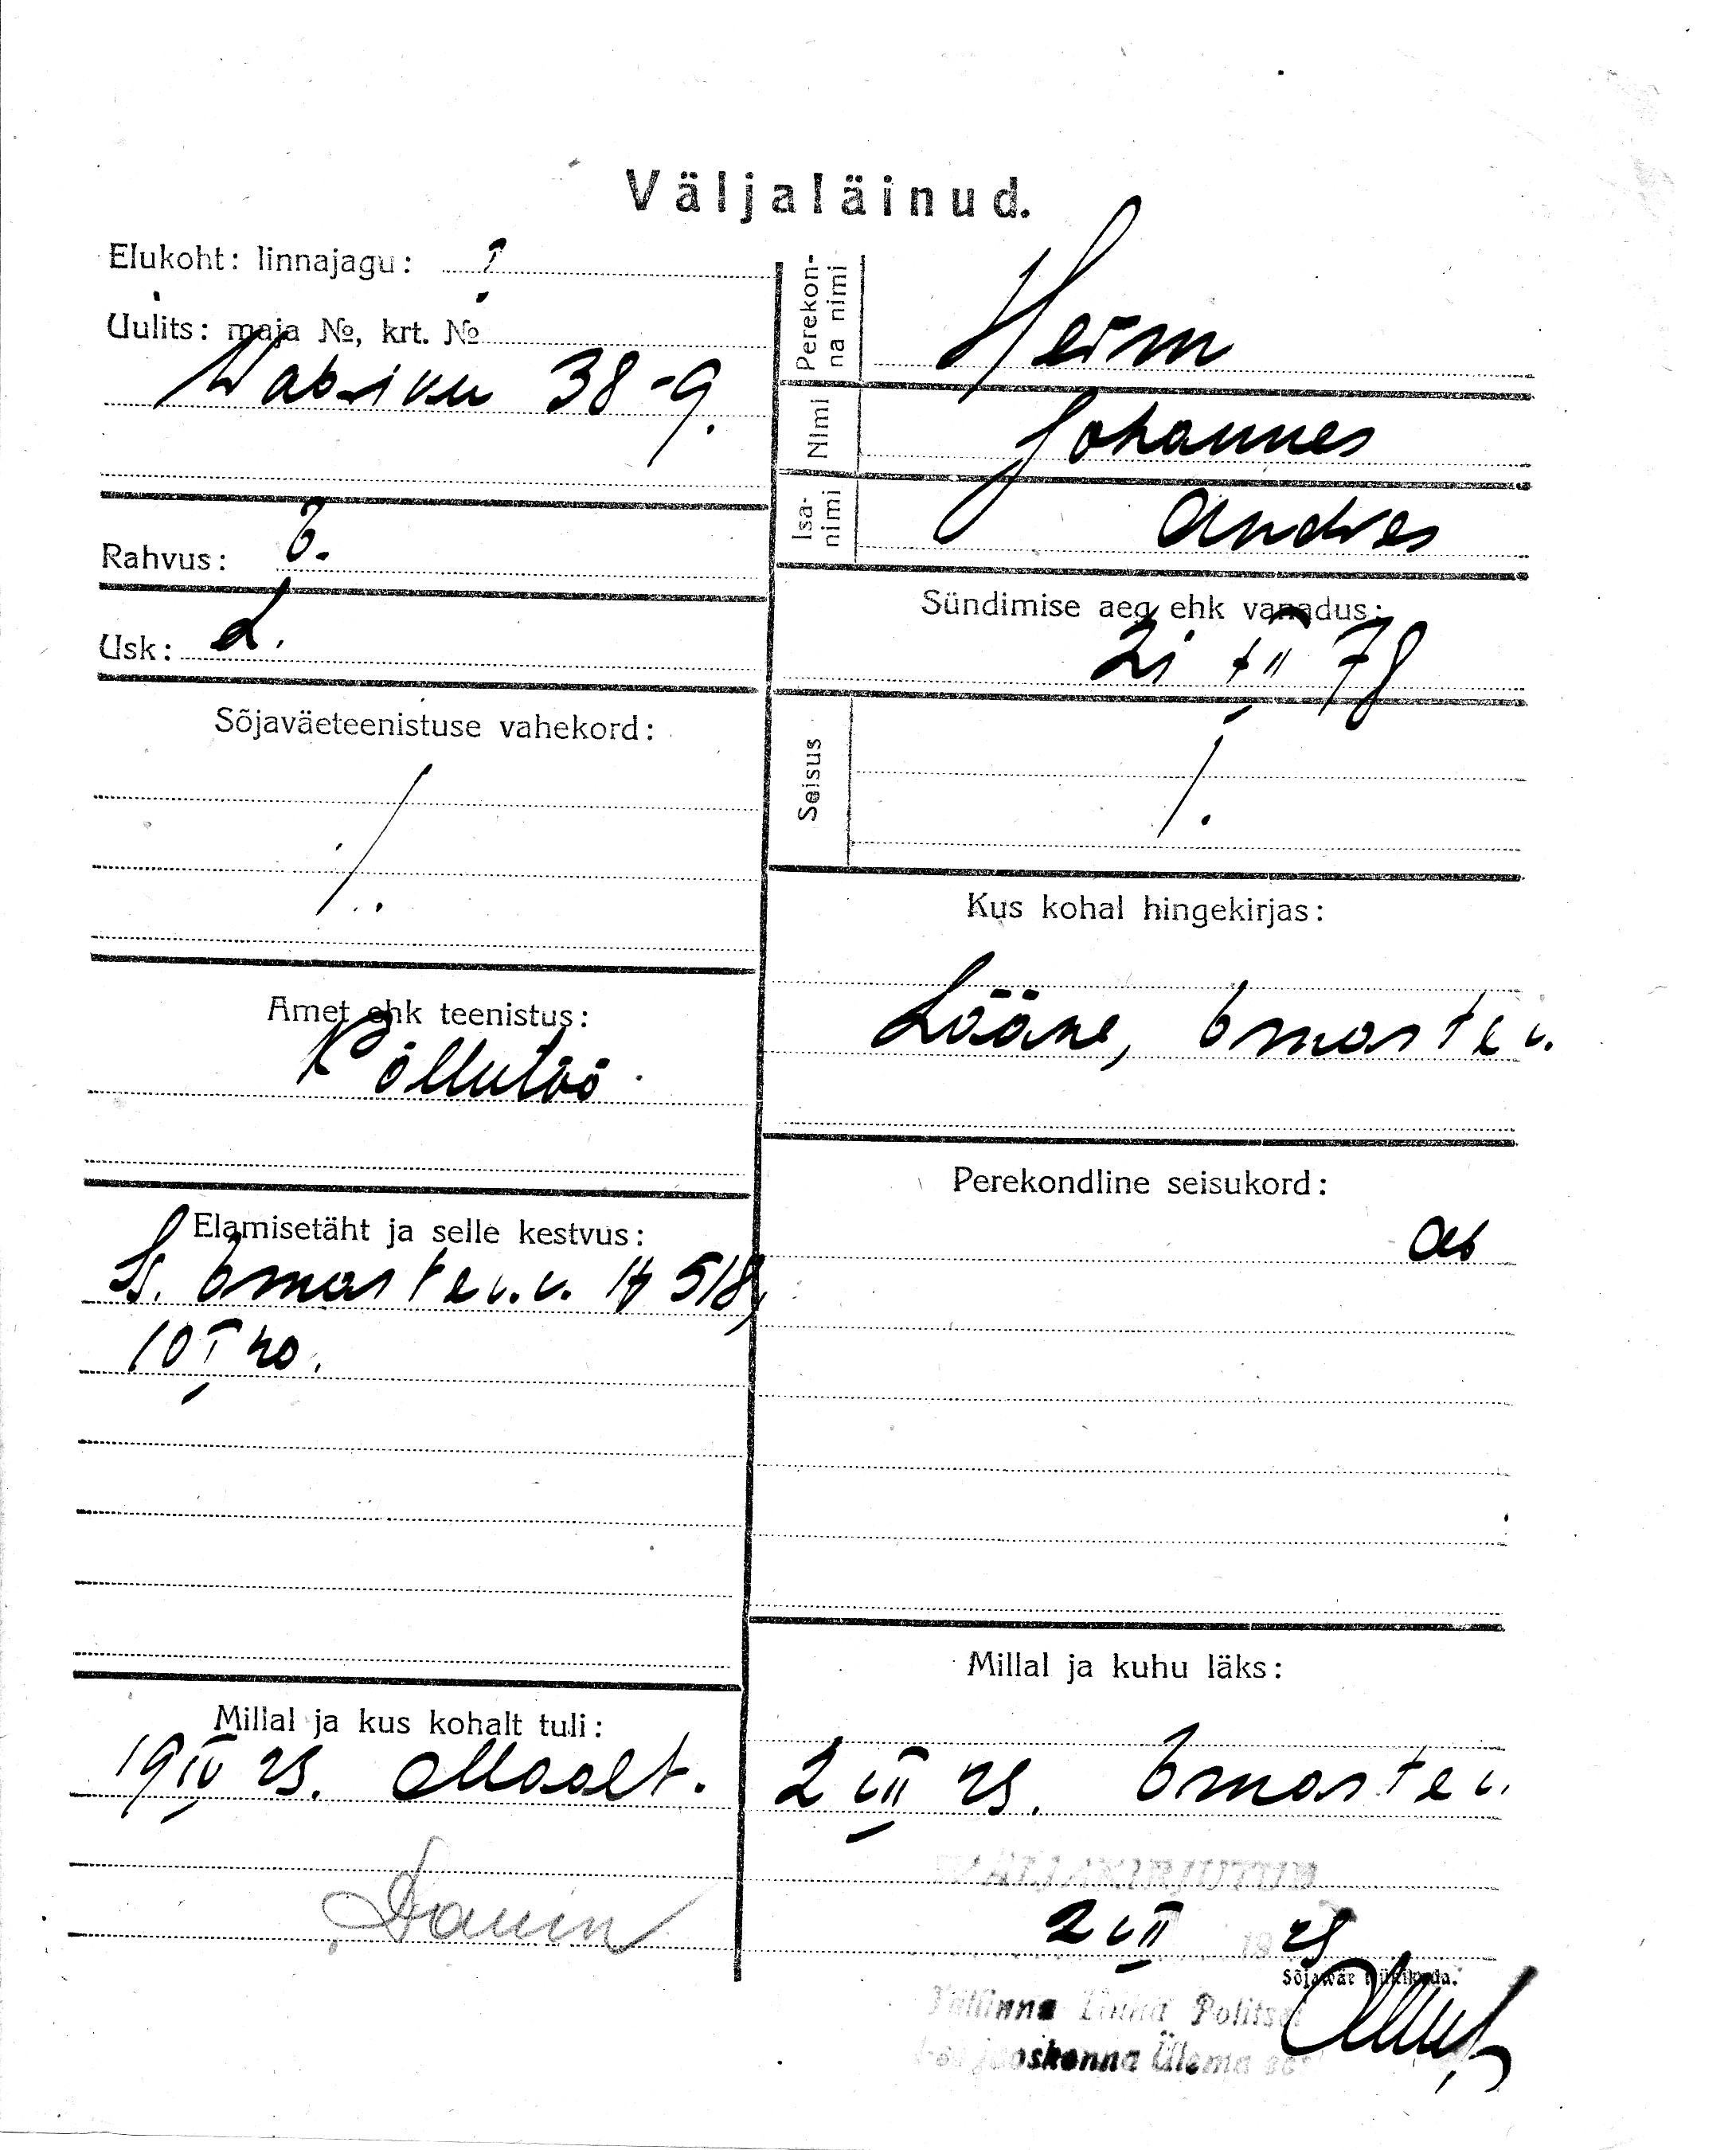 Väljaläinud.
Elukoht: linnajagu: ?
Uulits: maja №, krt. №
38-9.
Rahvus: E.
Usk: L.
Sõjaväeteenistuse vahekord:
/.
Amet ehk teenistus:
Põllutöö.
Elamisetäht ja selle kestvus:
Is. Emaste v.v. № 518,
10 I 20.
Millal ja kus kohalt tuli:
19 IV 23. Maalt.
Perekonna nimi
Heim
Nimi
Johannes
Isanimi
Andres
Sündimise aeg ehk vanadus:
21 XII 78
Seisus
/.
Kus kohal hingekirjas:
Lääne, Emaste v.
Perekondline seisukord:
ab
Millal ja kuhu läks:
2 VII 23. Emaste v.
VÄLJAKIRJUTUD
2 VII 1923
Sõjawäe trükikoda.
Tallinna Linna Politsei
jaoskonna Ülema